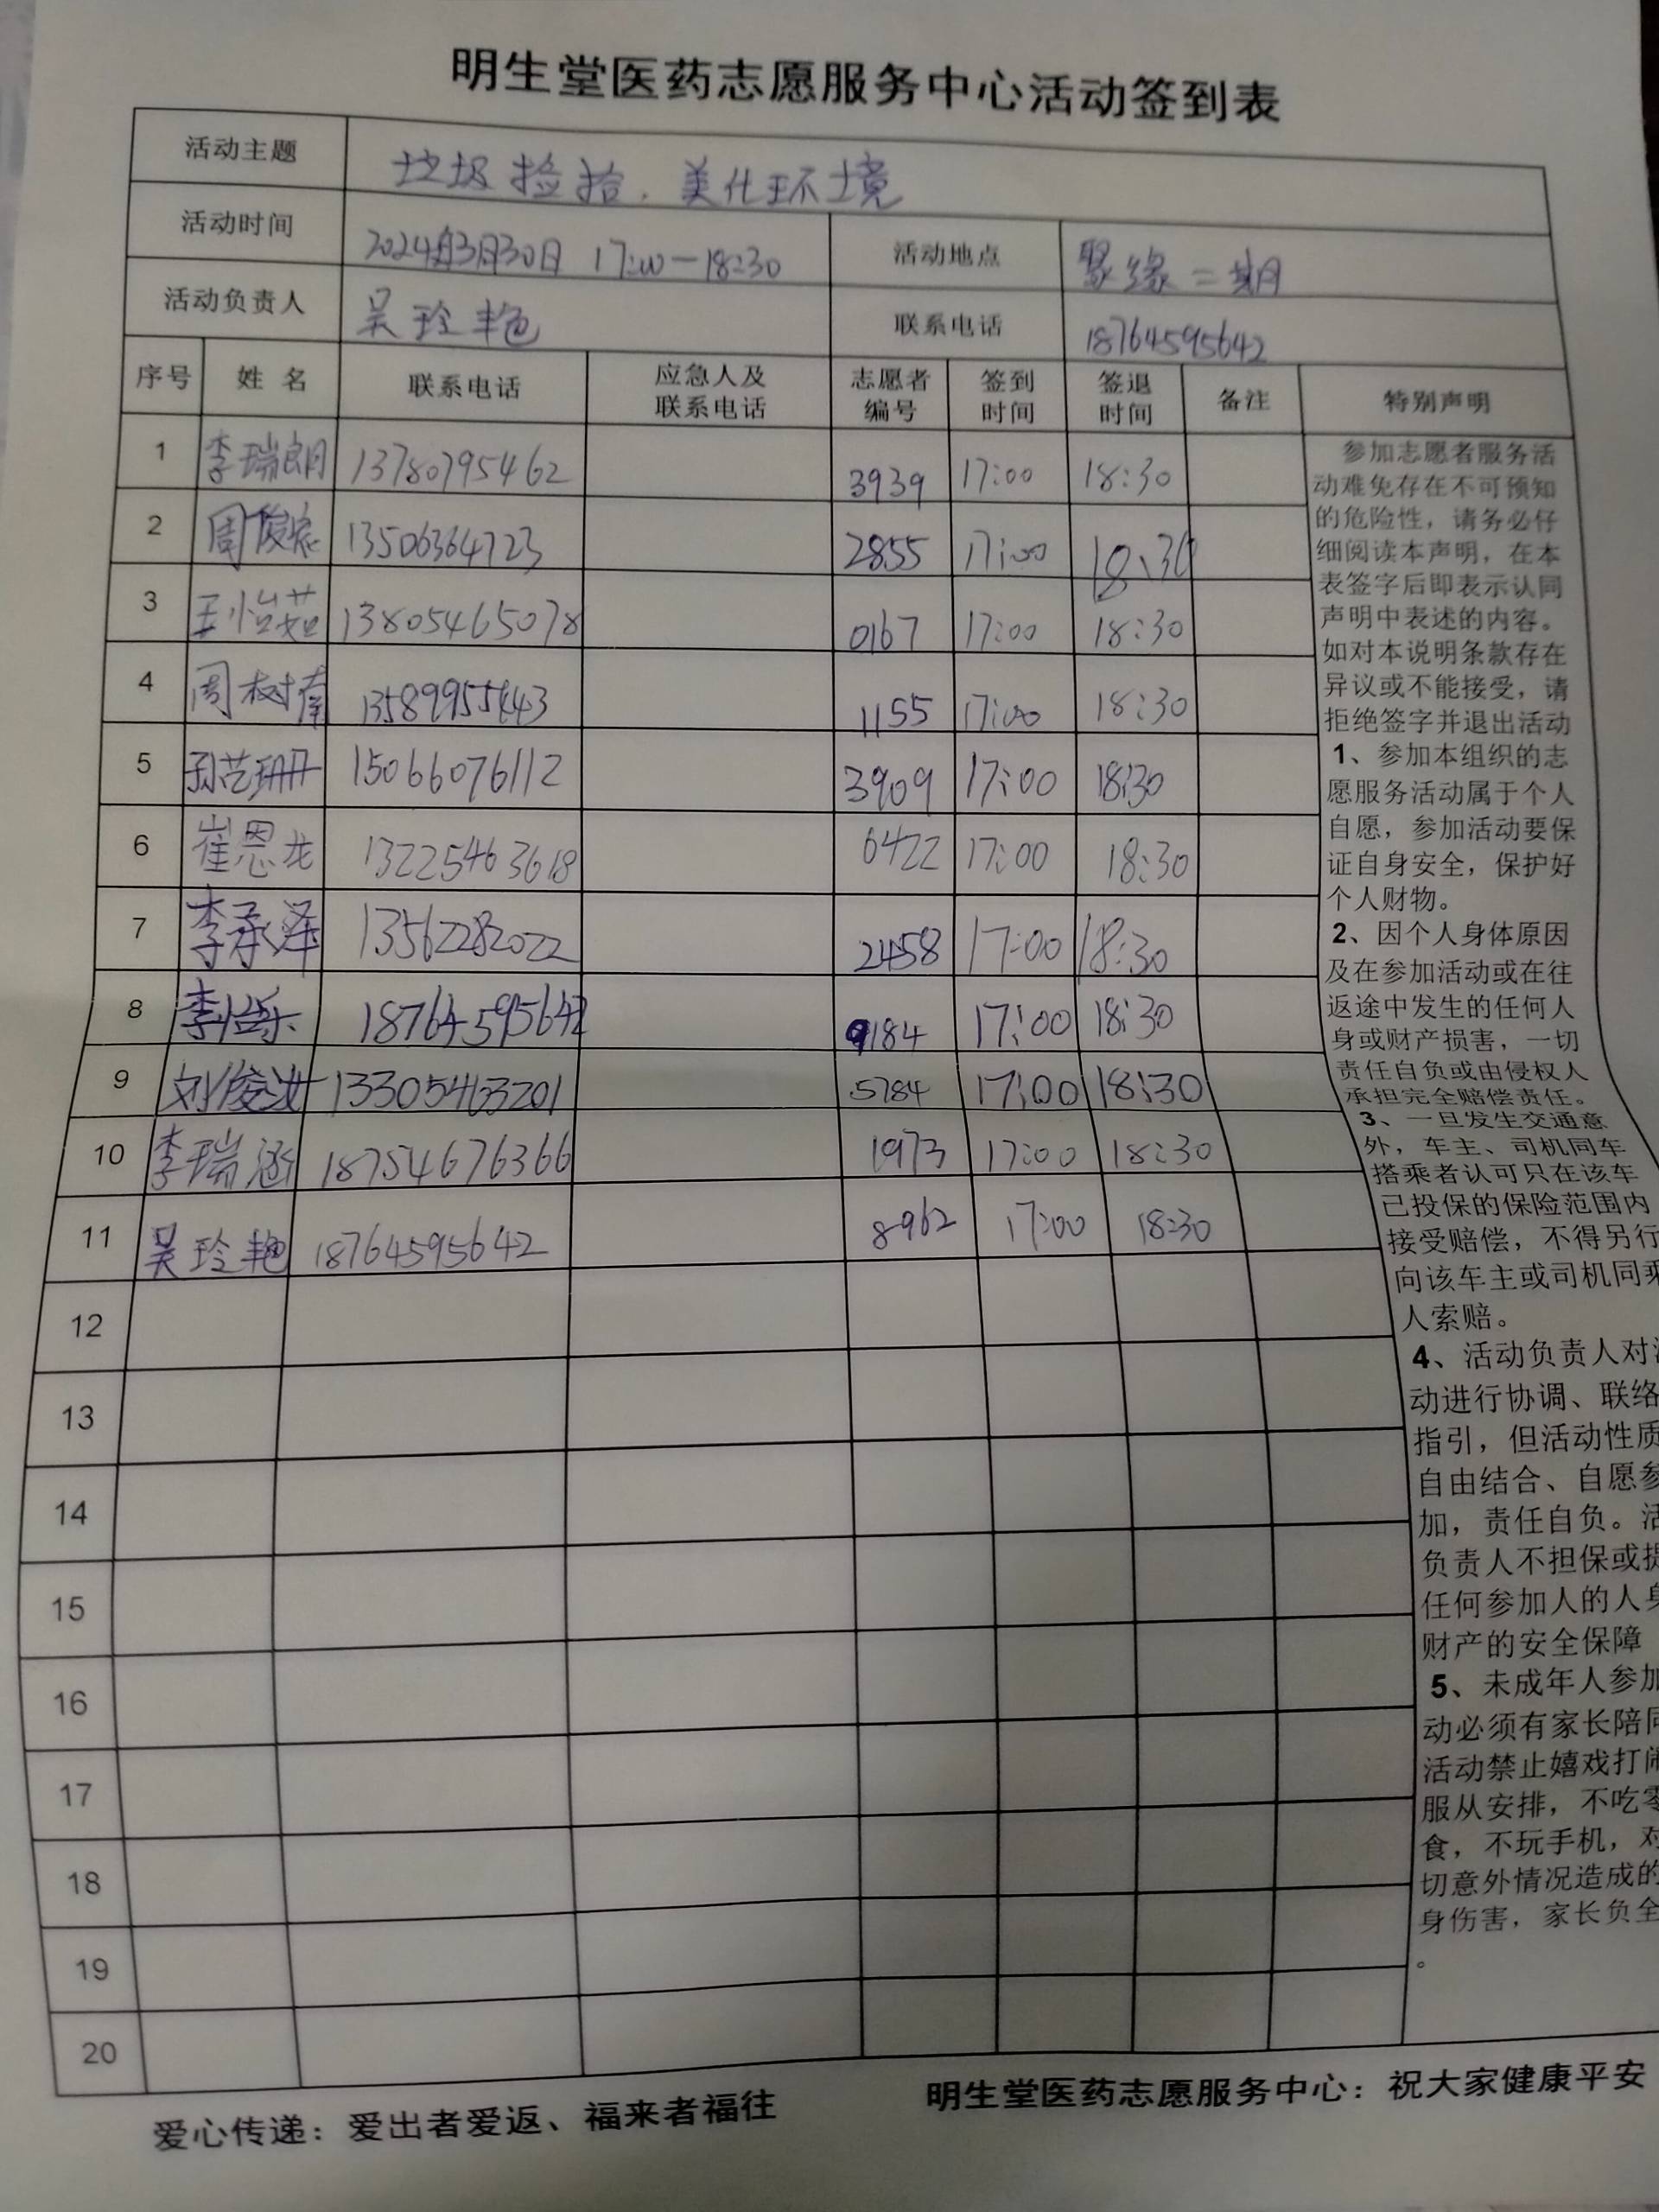 明生堂医药志愿服务中心活动签到表
活动主题 垃圾捡拾.美化环境
活动时间 2024年3月30日 17:00—18:30 活动地点 聚缘二期
活动负责人 吴玲艳 联系电话 18764595642
序号 姓名 联系电话 应急人及联系电话 志愿者编号 签到时间 签退时间 备注 特别声明
1 李瑞朗 13780795462 3939 17:00 18:30
2 周俊宏 13506364723 2855 17:00 18:30
3 王怡茹 13805465078 0167 17:00 18:30
4 周树楠 1155 17:00 18:30
5 孙艺珊 15066076112 3909 17:00 18:30
6 崔恩龙 13225463618 6422 17:00 18:30
7 李承泽 13562282022 2458 17:00 18:30
8 李怡乐 18764595642 9184 17:00 18:30
9 刘俊汝 13305463201 5784 17:00 18:30
10 李瑞涵 18754676366 1973 17:00 18:30
11 吴玲艳 18764595642 8962 17:00 18:30
12
13
14
15
16
17
18
19
20
参加志愿者服务活
动难免存在不可预知
的危险性，请务必仔
细阅读本声明，在本
表签字后即表示认同
声明中表述的内容。
如对本说明条款存在
异议或不能接受，请
拒绝签字并退出活动
1、参加本组织的志
愿服务活动属于个人
自愿，参加活动要保
证自身安全，保护好
个人财物。
2、因个人身体原因
及在参加活动或在往
返途中发生的任何人
身或财产损害，一切
责任自负或由侵权人
承担完全赔偿责任。
3、一旦发生交通意
外，车主、司机同车
搭乘者认可只在该车
已投保的保险范围内
接受赔偿，不得另行
向该车主或司机同乘
人索赔。
4、活动负责人对活
动进行协调、联络
指引，但活动性质
自由结合、自愿参
加，责任自负。活
负责人不担保或提
任何参加人的人身
财产的安全保障
5、未成年人参加
动必须有家长陪同
活动禁止嬉戏打闹
服从安排，不吃零
食，不玩手机，对
切意外情况造成的
身伤害，家长负全
。
爱心传递：爱出者爱返、福来者福往 明生堂医药志愿服务中心：祝大家健康平安